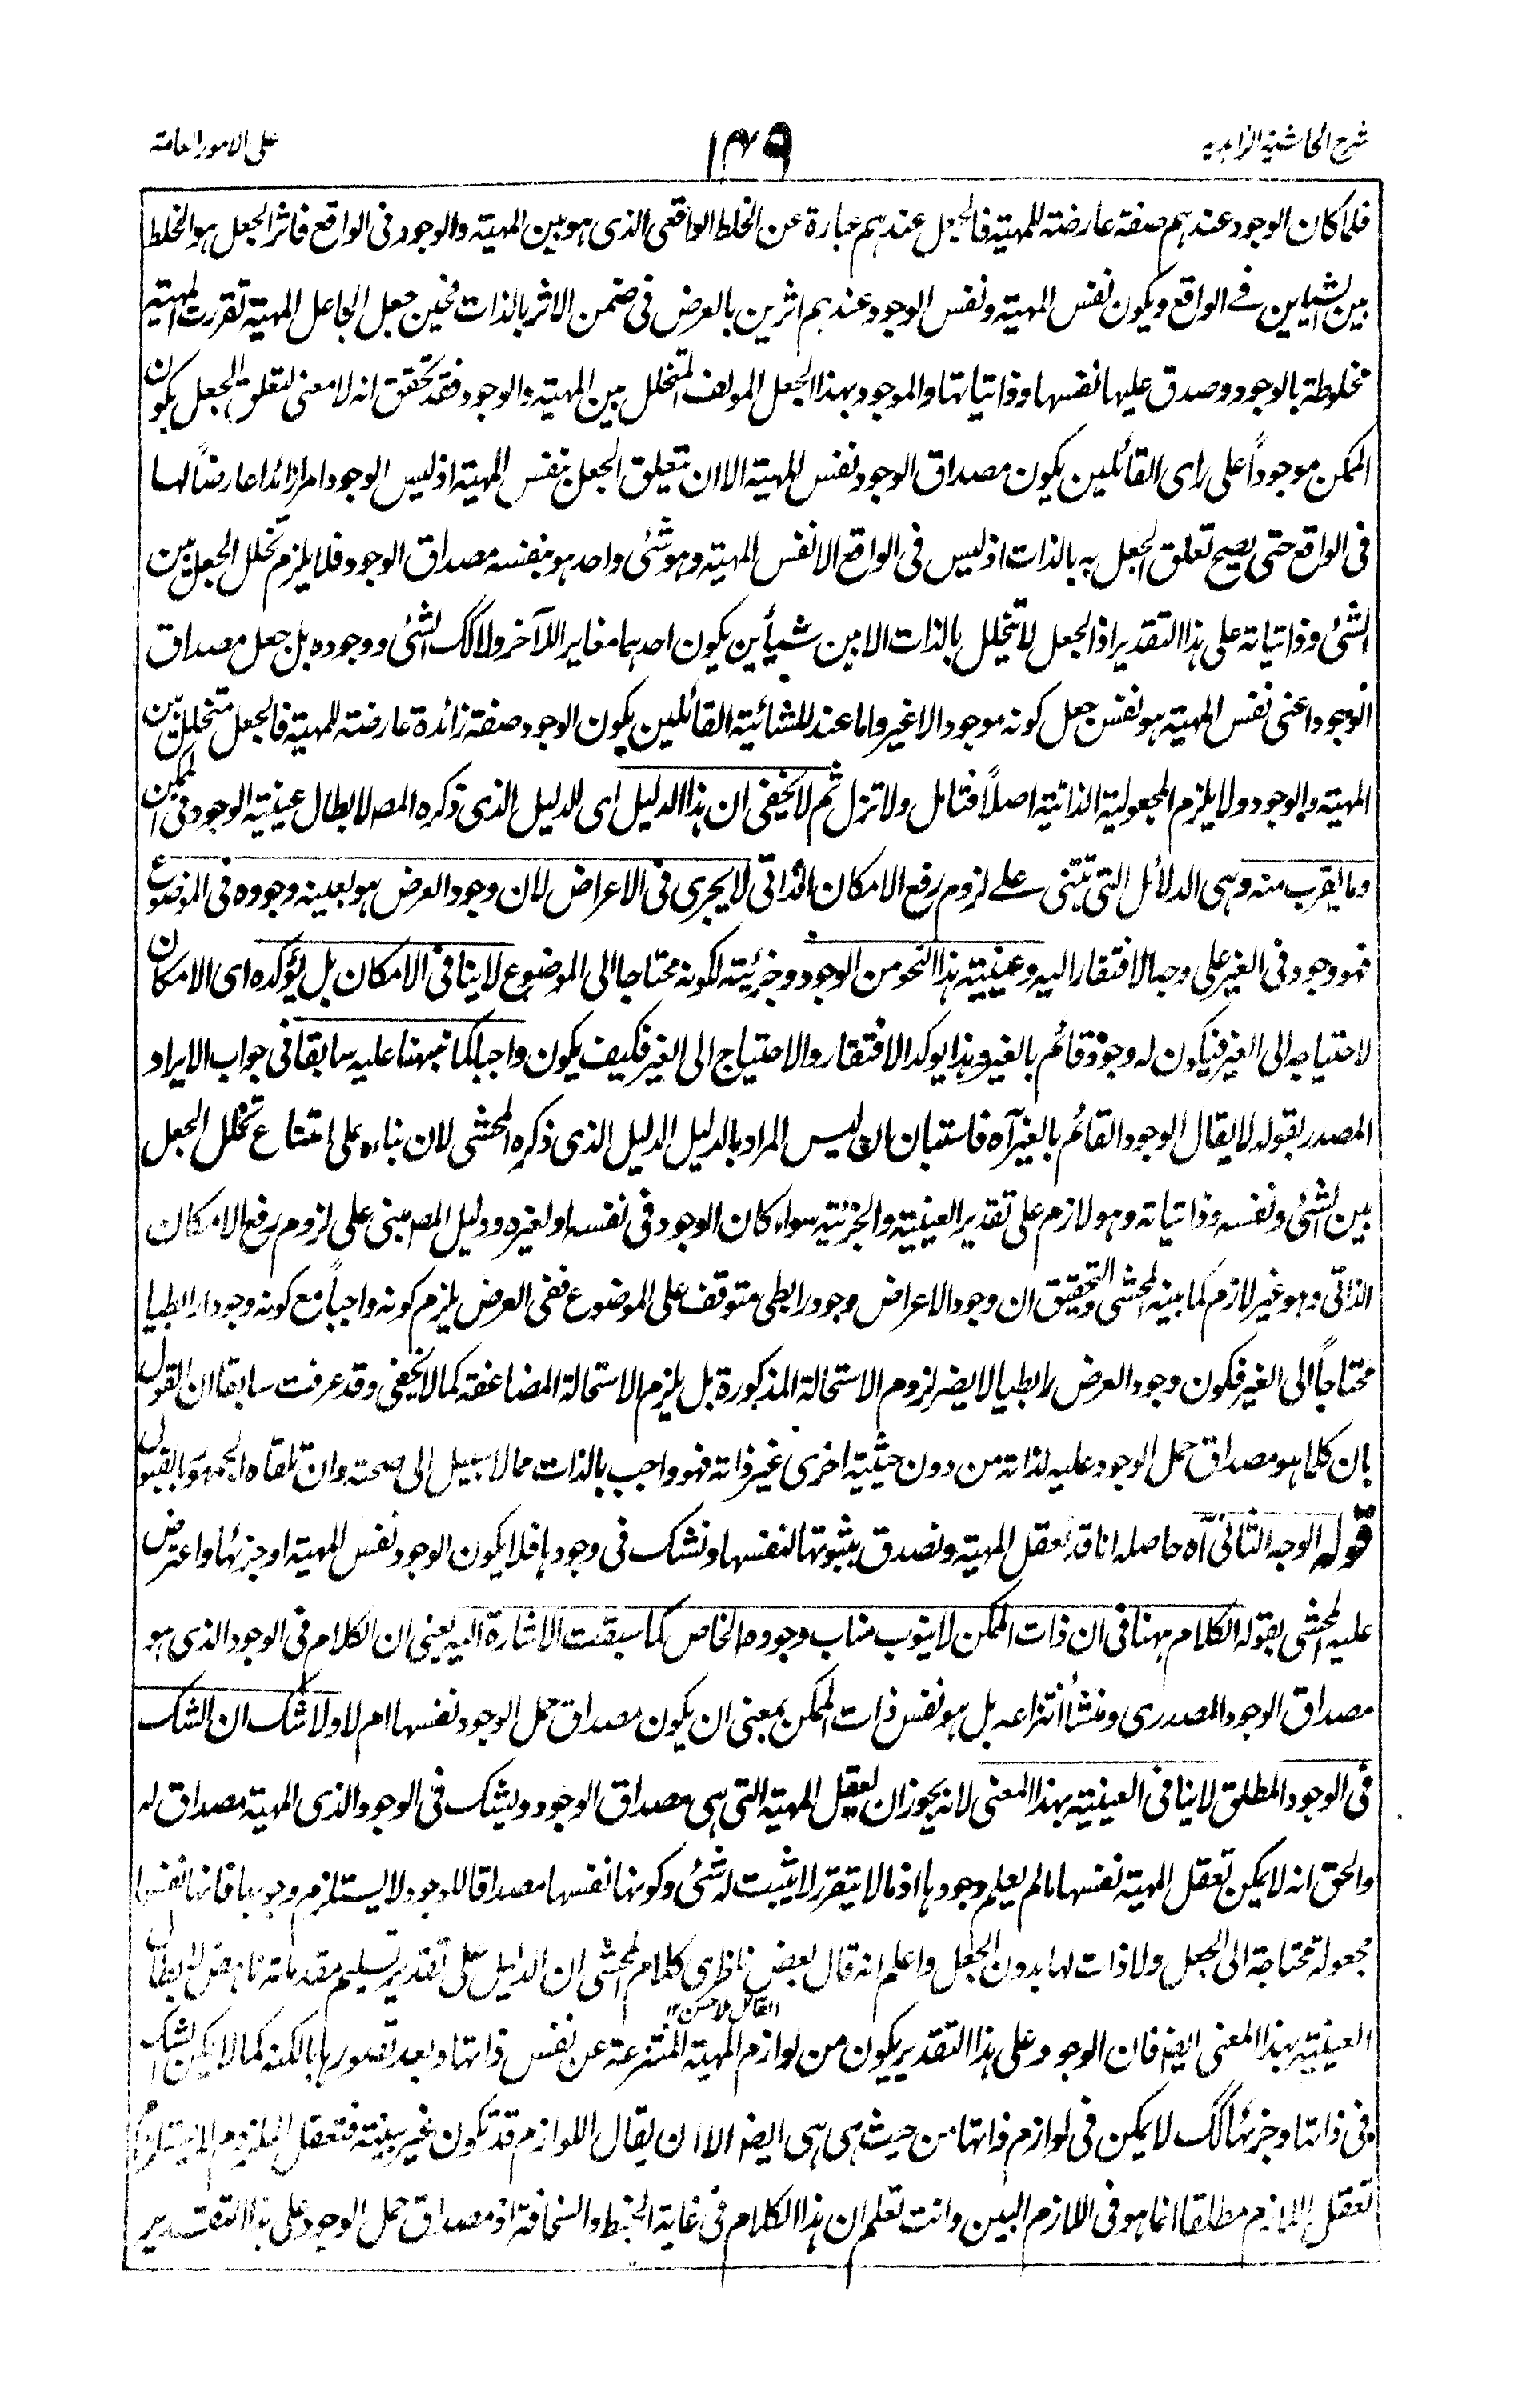 شرح الحاشية الزاهدية
١٣٩
على الامور العامة
فلما كان الوجود عندهم صفة عارضة للمهية فالجعل عندهم عبارة عن الخلط الواقعى الذى هو بين المهية والوجود فى الواقع فاثر الجعل هو الخلط
بين الشيأين فى الواقع ويكون نفس المهية ونفس الوجود عندهم اثرين بالعرض فى ضمن الاثر بالذات فحين جعل الجاعل المهية تقررت المهية
مخلوطة بالوجود وصدق عليها نفسها وذاتياتها والموجود بهذا الجعل المولف المتخلل بين المهية والوجود فقد تحقق انه لا معنى لتعلق الجعل بكون
الممكن موجوداً على راى القائلين بكون مصداق الوجود نفس المهية الا ان يتعلق الجعل بنفس المهية اذ ليس الوجود امرا زائدا عارضاً لها
فى الواقع حتى يصح تعلق الجعل به بالذات اذ ليس فى الواقع الا نفس المهية وهو شئ واحد هو بنفسه مصداق الوجود فلا يلزم تخلل الجعل بين
الشئ وذاتياته على هذا التقدير اذ الجعل لا يتخلل بالذات الا بين شيأين يكون احدهما مغايرا للآخر ولا كك الشئ ووجوده بل جعل مصداق
الوجود اعنى نفس المهية هو نفس جعل كونه موجودا لا غير واما عند المشائية القائلين بكون الوجود صفة زائدة عارضة للمهية فالجعل متخلل بين
المهية والوجود ولا يلزم المجعولية الذاتية اصلاً فتامل ولا تزل ثم لا يخفى ان هذا الدليل اى الدليل الذى ذكره المصـ لابطال عينية الوجود فى الممكن
وما يقرب منه وهى الدلائل التى تبتنى على لزوم رفع الامكان الذاتى لا يجرى فى الاعراض لان وجود العرض هو بعينه وجوده فى الموضوع
فهو وجود فى الغير على وجه الافتقار اليه وعينية هذا النحو من الوجود وجزئيته لكونه محتاجا الى الموضوع لا ينافى الامكان بل يؤكده اى الامكان
لاحتياجه الى الغير فيكون له وجود قائم بالغير وهذا يوكد الافتقار والاحتياج الى الغير فكيف يكون واجبا كما نبهنا عليه سابقا فى جواب الايراد
المصدر بقوله لا يقال الوجود القائم بالغير آه فاستبان ان ليس المراد بالدليل الدليل الذى ذكره المحشى لان بناءه على امتناع تخلل الجعل
بين الشئ ونفسه وذاتياته وهو لازم على تقدير العينية والجزئية سواء كان الوجود فى نفسه او لغيره ودليل المصـ مبنى على لزوم رفع الامكان
الذاتى وهو غير لازم كما بينه المحشى والتحقيق ان وجود الاعراض وجود رابطى متوقف على الموضوع ففى العرض يلزم كونه واجباً مع كونه وجودا رابطيا
محتاجاً الى الغير فكون وجود العرض رابطيا لا يضر لزوم الاستحالة المذكورة بل يلزم الاستحالة المضاعفة كما لا يخفى وقد عرفت سابقا ان القول
بان كلما هو مصداق حمل الوجود عليه لذاته من دون حيثية اخرى غير ذاته فهو واجب بالذات مما لا سبيل الى صحته وان تلقاه الجمهور بالقبول
قوله الوجه الثانى آه حاصله انا قد نعقل المهية ونصدق بثبوتها لنفسها ونشك فى وجودها فلا يكون الوجود نفس المهية او جزئها واعترض
عليه المحشى بقوله الكلام ههنا فى ان ذات الممكن لا ينوب مناب وجوده الخاص كما سبقت الاشارة اليه يعنى ان الكلام فى الوجود الذى هو
مصداق الوجود المصدرى ومنشأ انتزاعه بل هو نفس ذات الممكن بمعنى ان يكون مصداق حمل الوجود نفسها ام لا ولا شك ان الشك
فى الوجود المطلق لا ينافى العينية بهذا المعنى لانه يجوز ان يعقل المهية التى هى مصداق الوجود ويشك فى الوجود الذى المهية مصداق له
والحق انه لا يمكن تعقل المهية نفسها ما لم يعلم وجودها اذ ما لا يتقرر لا يثبت له شئ وكونها نفسها مصداقا للوجود لا يستلزم وجوبها فانها نفسها
مجعولة محتاجة الى الجعل ولا ذات لها بدون الجعل واعلم انه قال بعض ناظرى كلام المحشى ان الدليل على تقدير تسليم مقدماته ناهض لابطال
العينية بهذا المعنى ايضا فان الوجود على هذا التقدير يكون من لوازم المهية المنتزعة عن نفس ذاتها وبعد تصورها بالكنه كما لا يمكن الشك
فى ذاتها وجزئها كك لا يمكن فى لوازم ذاتها من حيث هى هى ايضا الا ان يقال اللوازم قد تكون غير بينة فتعقل الملزوم المستلزم
تعقل اللازم مطلقا انما هو فى اللازم البين وانت تعلم ان هذا الكلام فى غاية الخبط والسخافة اذ مصداق حمل الوجود على هذا التقدير